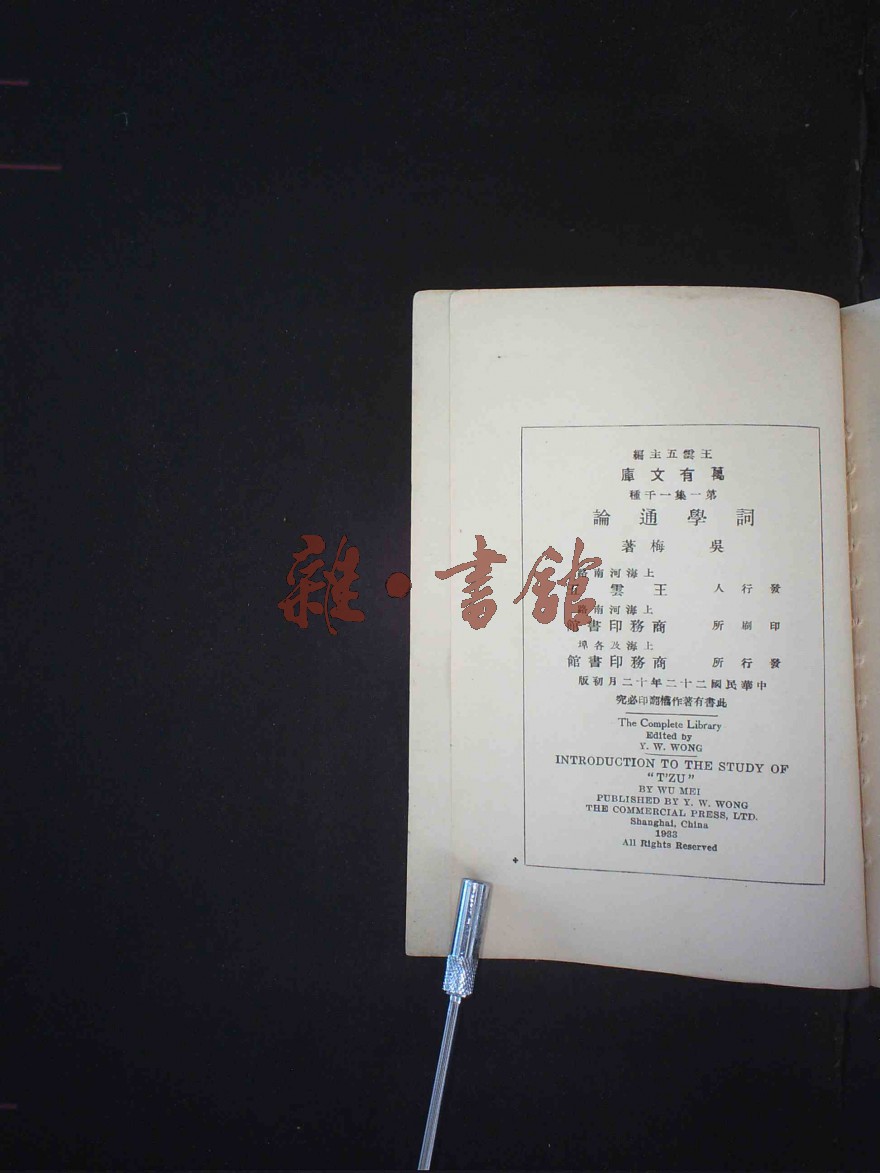 王雲五主編
萬有文庫
第一集一千種
詞學通論
吳梅著
上海河南路
發行人 王雲五
上海河南路
印刷所 商務印書館
上海及各埠
發行所 商務印書館
中華民國二十二年十二月初版
此書有著作權翻印必究
The Complete Library
Edited by
Y. W. WONG
INTRODUCTION TO THE STUDY OF
"T'ZU"
BY WU MEI
PUBLISHED BY Y. W. WONG
THE COMMERCIAL PRESS, LTD.
Shanghai, China
1933
All Rights Reserved
雜·書館